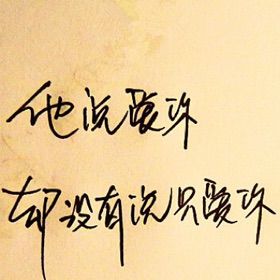 他说爱你
却没有说只爱你